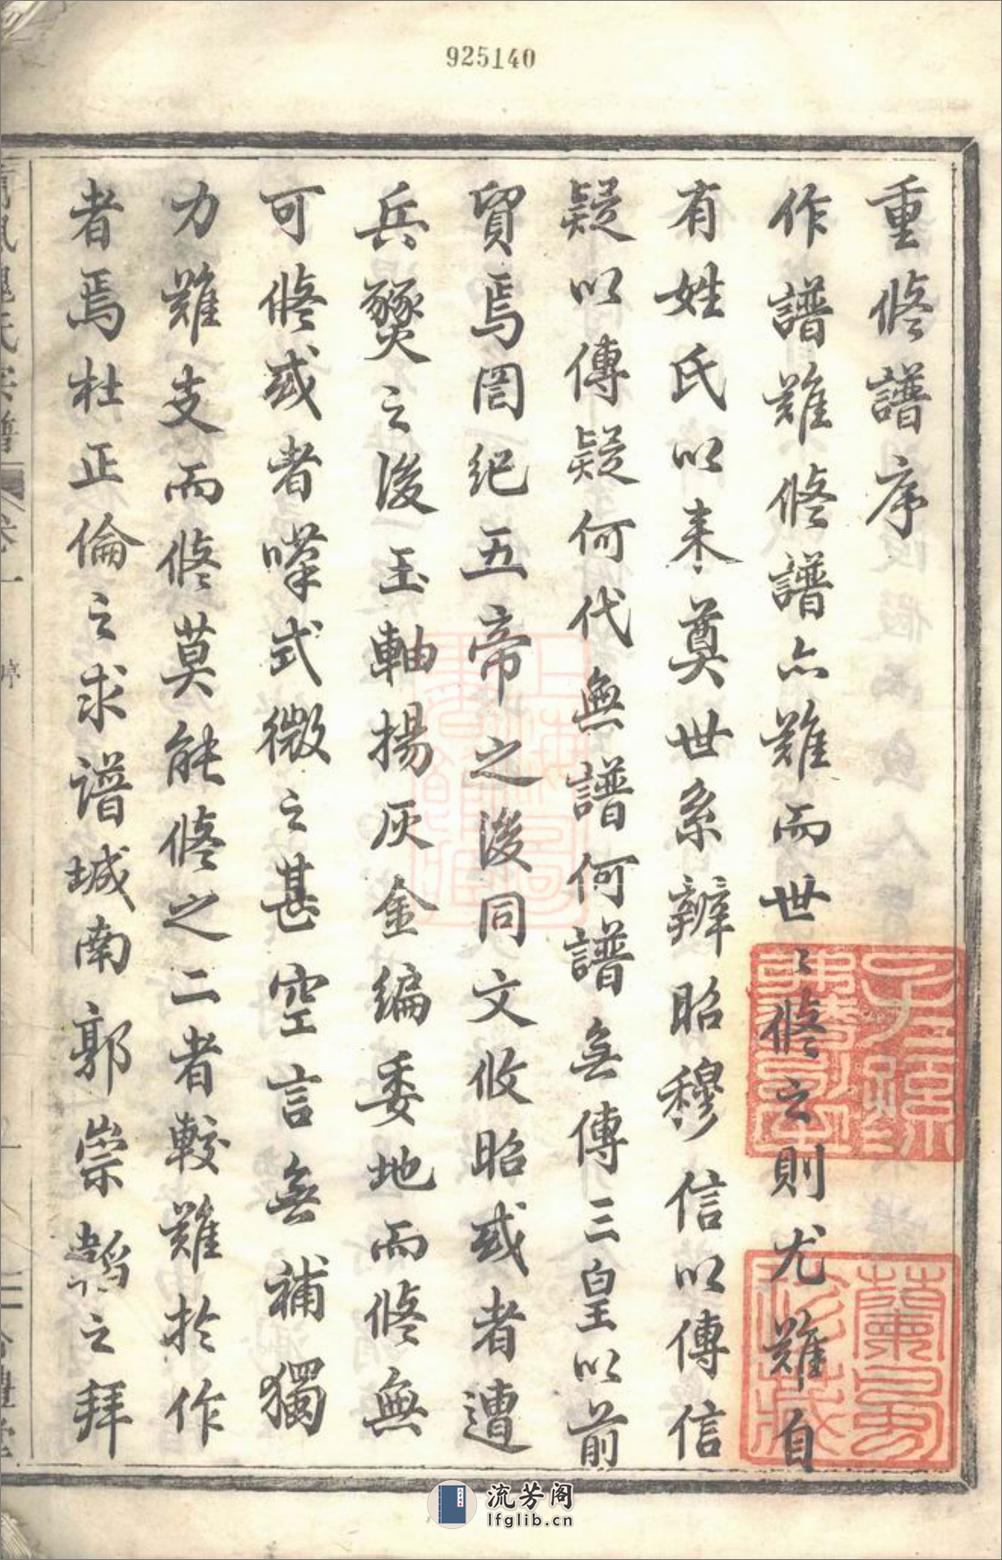 925140
重修譜序
作譜難修譜亦難而世〻修之則尤難自
有姓氏以来奠世系辨昭穆信以傳信
疑以傳疑何代無譜何譜無傳三皇以前
貿焉罔紀五帝之後同文攸昭或者遭
兵燹之後玉軸揚灰金編委地而修無
可修或者嘆式微之甚空言無補獨
力難支而修莫能修之二者較難扵作
者焉杜正倫之求譜城南郭崇韜之拜
氏宗譜
卷一
序
流芳阁
lfglib.cn